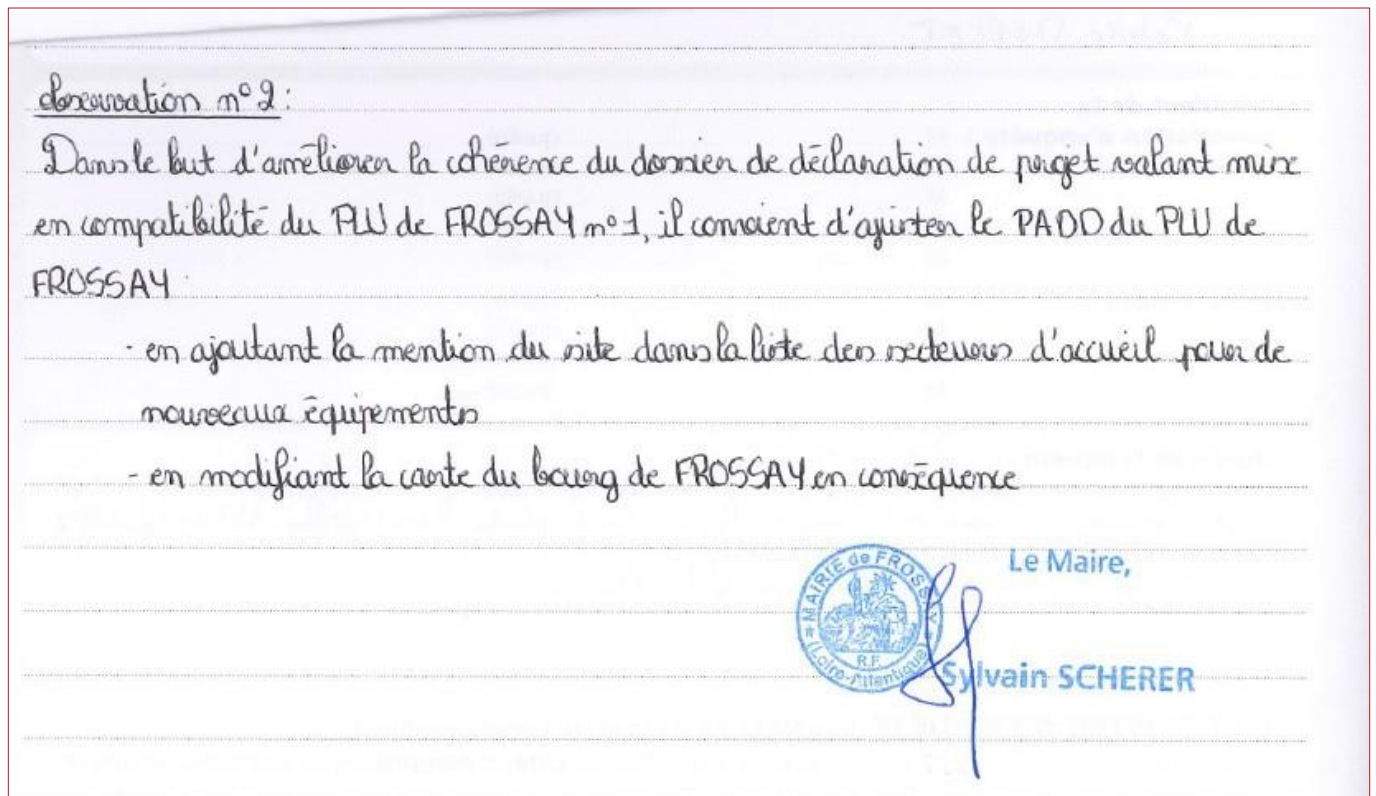 observation n° 2 :
Dans le but d'améliorer la cohérence du dossier de déclaration de projet valant mise
en compatibilité du PLU de FROSSAY n° 1, il convient d'ajuster le PADD du PLU de
FROSSAY :
- en ajoutant la mention du site dans la liste des secteurs d'accueil pour de
nouveaux équipements
- en modifiant la carte du bourg de FROSSAY en conséquence
MAIRIE de FROSSAY
R.F.
(Loire-Atlantique)
Le Maire,
Sylvain SCHERER